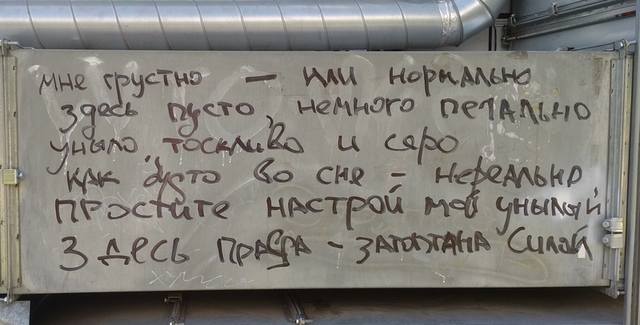 мне грустно — или нормально
здесь пусто, немного печально
уныло, тоскливо и серо
как будто во сне – нереально
простите настрой мой унылый
здесь правда – затоптана силой